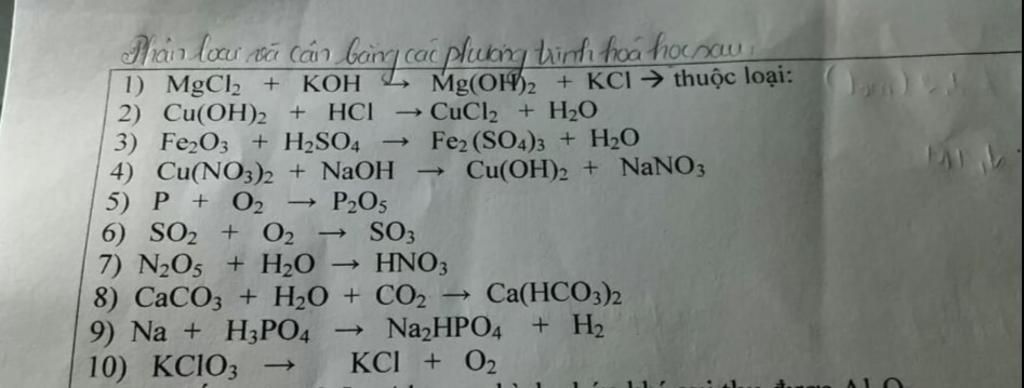 Phân loại và cân bằng các phương trình hoá học sau:
1) MgCl₂ + KOH → Mg(OH)₂ + KCl → thuộc loại:
2) Cu(OH)₂ + HCl → CuCl₂ + H₂O
3) Fe₂O₃ + H₂SO₄ → Fe₂(SO₄)₃ + H₂O
4) Cu(NO₃)₂ + NaOH → Cu(OH)₂ + NaNO₃
5) P + O₂ → P₂O₅
6) SO₂ + O₂ → SO₃
7) N₂O₅ + H₂O → HNO₃
8) CaCO₃ + H₂O + CO₂ → Ca(HCO₃)₂
9) Na + H₃PO₄ → Na₂HPO₄ + H₂
10) KClO₃ → KCl + O₂